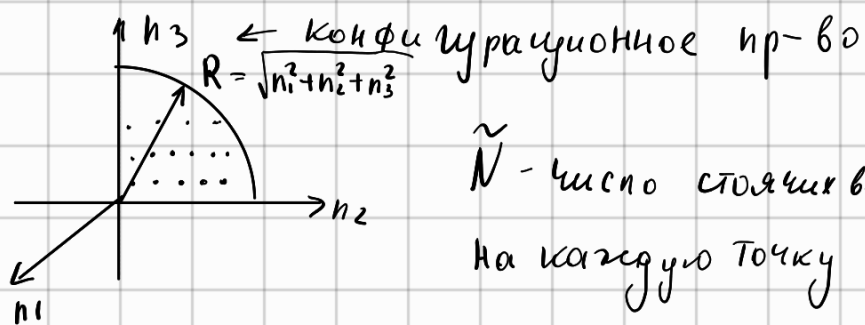 n3 ← конфигурационное пр-во
R = √n₁²+n₂²+n₃²
Ñ - число стоячих в
n2
на каждую точку
n1